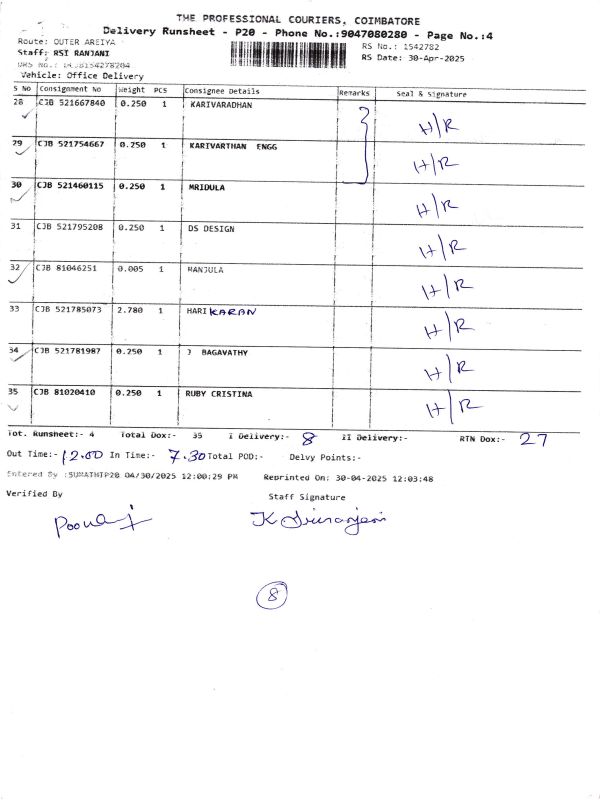 THE PROFESSIONAL COURIERS, COIMBATORE
Delivery Runsheet - P20 - Phone No.:9047080280 - Page No.:4
Route: OUTER AREIYA
RS No.: 1542782
Staff: RSI RANJANI
RS Date: 30-Apr-2025
DRS No.:
Vehicle: Office Delivery
S No Consignment No Weight PCS Consignee Details Remarks Seal & Signature
28 CJB 521667840 0.250 1 KARIVARADHAN H/R
29 CJB 521754667 0.250 1 KARIVARTHAN ENGG H/R
30 CJB 521460115 0.250 1 MRIDULA H/R
31 CJB 521795208 0.250 1 DS DESIGN H/R
32 CJB 81046251 0.005 1 MANJULA H/R
33 CJB 521785073 2.780 1 HARI KARAN H/R
34 CJB 521781987 0.250 1 J BAGAVATHY H/R
35 CJB 81020410 0.250 1 RUBY CRISTINA H/R
Tot. Runsheet:- 4 Total Dox:- 35 I Delivery:- 8 II Delivery:- RTN Dox:- 27
Out Time:- 12.00 In Time:- 7.30 Total POD:- Delvy Points:-
Entered By :SUMATHIP20 04/30/2025 12:00:29 PM Reprinted On: 30-04-2025 12:03:48
Verified By Staff Signature
8